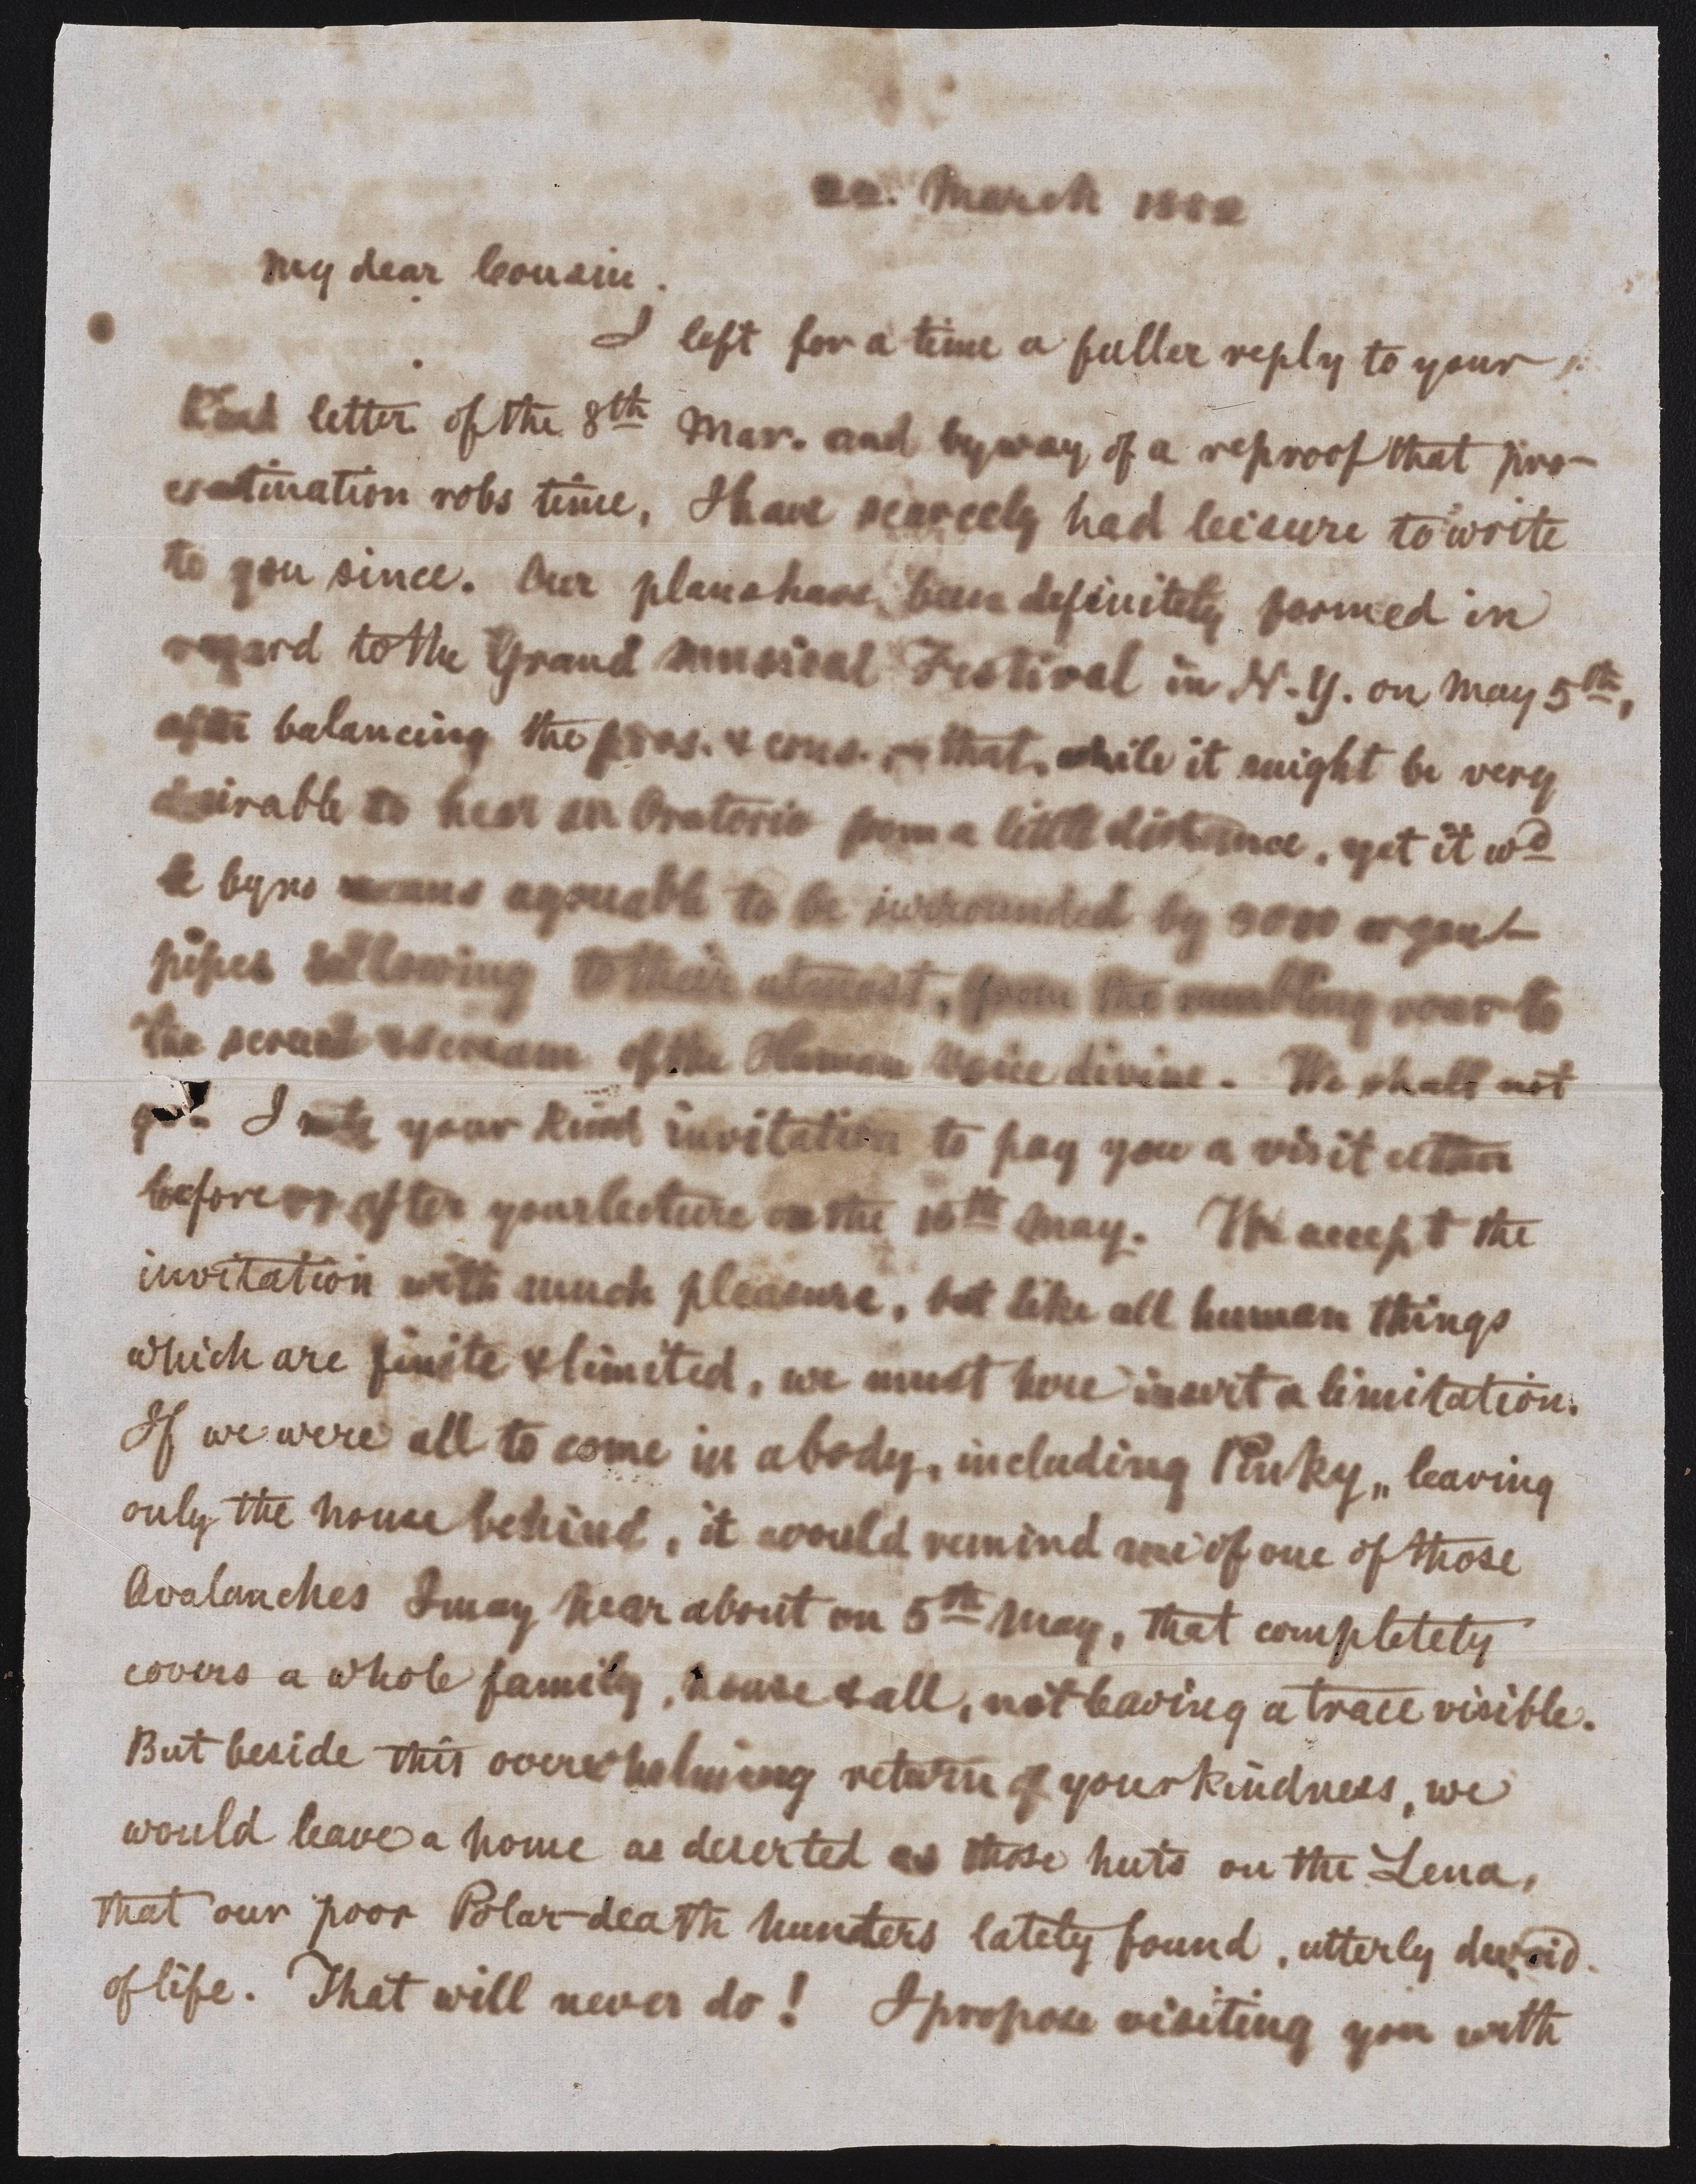 22. March 1882
My dear Cousin.
I left for a time a fuller reply to your
kind letter of the 8th Mar. and by way of a reproof that pro-
castination robs time, I have scarcely had leisure to write
to you since. Our plans have been definitely formed in
regard to the Grand Musical Festival in N.Y. on May 5th,
after balancing the pros. & cons. – that, while it might be very
desirable to hear an Oratorio from a little distance, yet it wd
be by no means agreeable to be surrounded by 3000 organ-
pipes bellowing to their utmost, from the rumbling roar to
the scream of the Human Voice divine. We shall not
go. I note your kind invitation to pay you a visit either
before or after your lecture on the 16th May. We accept the
invitation with much pleasure, but like all human things
which are finite & limited, we must here insert a limitation.
If we were all to come in a body, including Pinky,, leaving
only the house behind, it would remind me of one of those
Avalanches I may hear about on 5th May, that completely
covers a whole family, house & all, not leaving a trace visible.
But beside this overwhelming return of your kindness, we
would leave a home as deserted as those huts on the Lena,
that our poor Polar-death hunters lately found, utterly devoid
of life. That will never do! I propose visiting you with